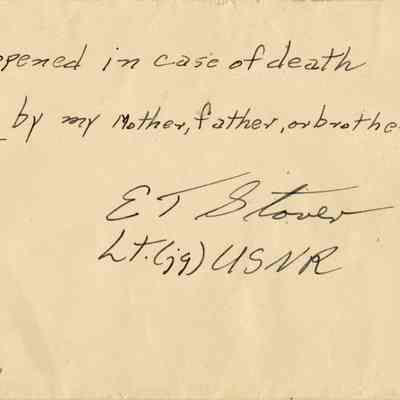 opened in case of death
by my Mother, father, or brothe
E T Stover
Lt. (jg) USNR